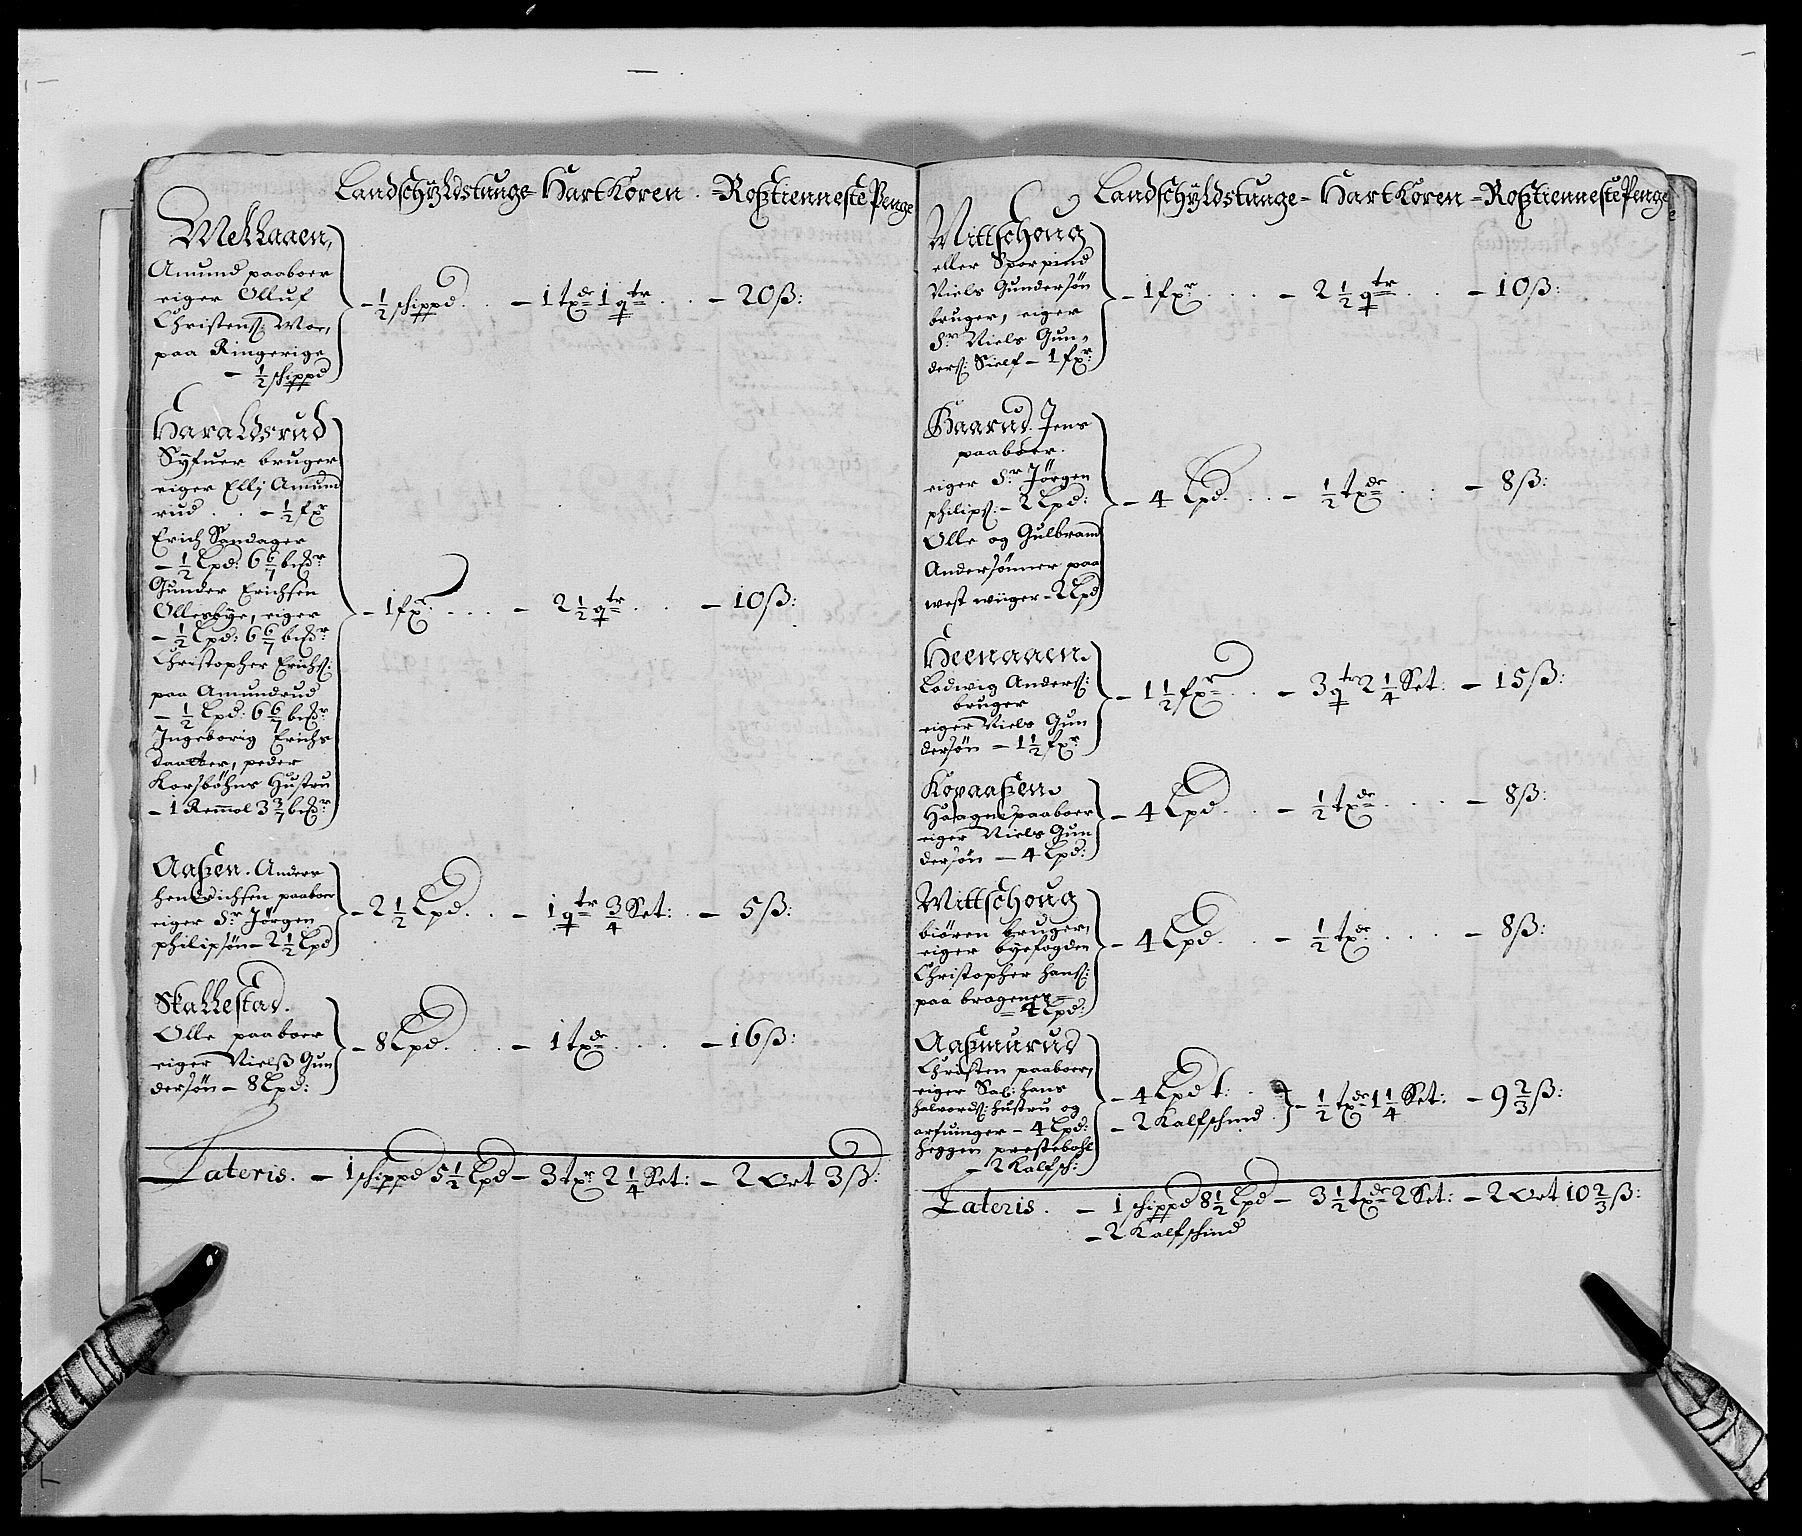 Landschÿldstunge - HartKoren - Roßtienneste Penge
Mehlaaen,
Amund paaboer
eiger Olluf
Christenß: Moe,
paa Ringerige
- ½ schippd
- ½ schippd . . - 1 txde 1 qtr . . - 20 ß:
Haraldsrud
Syfuer bruger
eiger Ellj Amund
rud . . - ½ fxr
Erich Sandager
- ½ Lpd: 6 6/7 bißr
Gunder Erichsen
Ollesbye, eiger
- ½ Lpd: 6 6/7 bißr
Christopher Erichß:
paa Amundrud
- ½ Lpd: 6 6/7 bißr
Ingeborig Erichs
daatter, peder
Korsbøhns Hustru
- 1 Remol 3 3/7 bißr
- 1 fxr . . . . - 2 ½ qtr . . . - 10 ß:
Aaßen. Anders
hendrichsen paaboer
eiger Sr Jørgen
philipsøn - 2 ½ Lpd
- 2 ½ Lpd . . - 1 qtr ¾ Set: . - 5 ß:
Skallestad.
Olle paaboer
eiger Nielß Gun
dersøn - 8 Lpd:
- 8 Lpd . . . - 1 txde . . . - 16 ß:
Lateris. - 1 schippd 5 ½ Lpd - 3 txr 2 ¼ Set: - 2 Ort 3 ß:
Landschÿldstunge - HartKoren - Roßtienneste Penge
Wittschoug
eller Sporpind
Niels Gundersøn
bruger, eiger
Sr Niels Gun,,
derß: Sielf - 1 fxr:
- 1 fxr . . . . - 2 ½ qtr . . . - 10 ß:
Haarud. Jens
paaboer.
eiger Sr Jørgen
philipß: - 2 Lpd:
Olle og Gulbrand
Andersønner paa
west wiiger - 2 Lpd
- 4 Lpd . . . - ½ txde . . . - 8 ß:
Heenaaen.
Lodwig Anderß:
bruger
eiger Niels Gun
dersøn - 1 ½ fxr
- 1 ½ fxr . . - 3 qtr 2 ¼ Set: - 15 ß:
Kopaaßen.
Haagen paaboer
eiger Niels Gun
dersøn - 4 Lpd:
- 4 Lpd . . . - ½ txde . . . . - 8 ß:
Wittschoug
biøren bruger,
eiger byefogden
Christopher hanß:
paa bragener
- 4 Lpd:
- 4 Lpd . . . - ½ txde . . . . - 8 ß:
Aaßmurud
Christen paaboer,
eiger Sal: hans
halvordß: hustru og
arfuinger - 4 Lpd:
heggen prestebohl
- 2 Kalfsch:
- 4 Lpd t.
- 2 Kalfschind . - ½ txde 1 ¼ Set: - 9 ⅔ ß:
Lateris. - 1 schippd 8 ½ Lpd - 3 ½ txde 2 Set: - 2 Ort 10 ⅔ ß:
- 2 Kalfschind